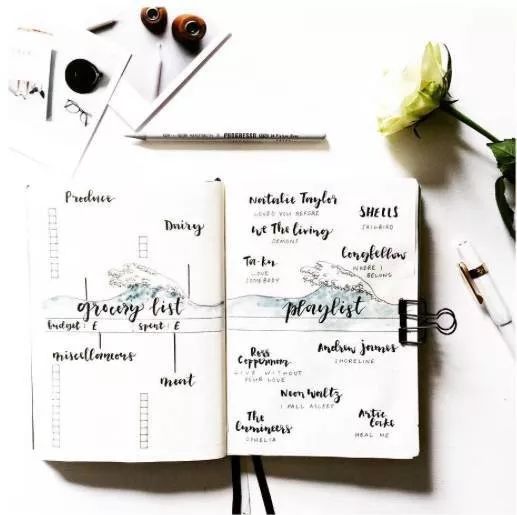 PROGRESSO
Produce
Dairy
grocery list
budget : £
spent : £
miscellaneous
meat
Natalie Taylor
LOVED YOU BEFORE
SHELLS
JAILBIRD
We The Living
DEMONS
Ta-ku
LOVE
SOMEBODY
Longfellow
WHERE I
BELONG
playlist
Ross
Copperman
LIVE WITHOUT
YOUR LOVE
Andrew James
SHORELINE
Neon Waltz
I FALL ASLEEP
The
Lumineers
OPHELIA
Artie
Lake
HEAL ME